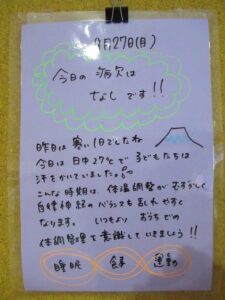 月27日(月)
今日の病欠は
なしです!!
昨日は寒い1日でしたね
今日は日中27℃で子どもたちは
汗をかいていました。
こんな時期は、体温調整がむずかしく、
自律神経のバランスも乱れやすく
なります。いつもより おうちでの
体調管理を意識していきましょう!!
睡眠 食事 運動